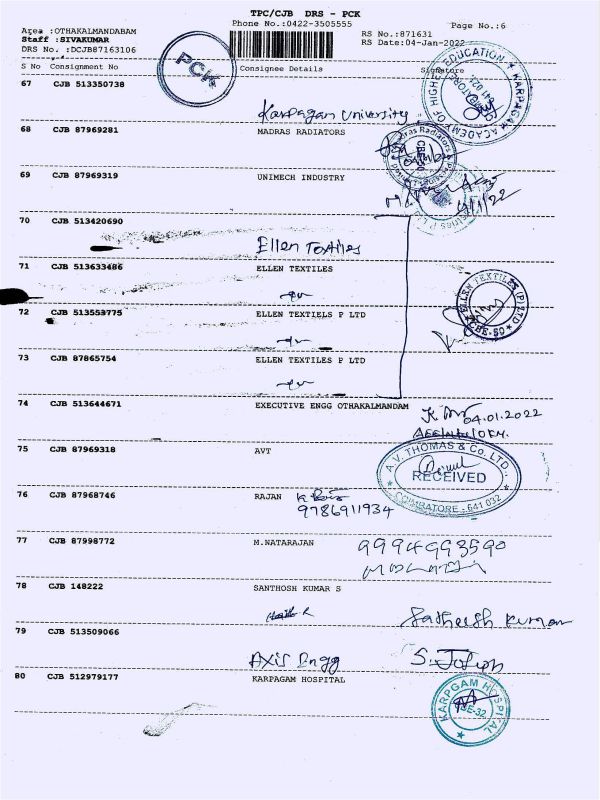 TPC/CJB DRS - PCK
Phone No.:0422-3505555
Page No.:6
Area :OTHAKALMANDABAM
Staff :SIVAKUMAR
RS No.:871631
DRS No. :DCJB87163106
RS Date:04-Jan-2022
PCK
S No Consignment No Consignee Details Signature
67 CJB 513350738
Karpagan University
KARPAGAM ACADEMY OF HIGHER EDUCATION
68 CJB 87969281 MADRAS RADIATORS
69 CJB 87969319 UNIMECH INDUSTRY
4/1/22
70 CJB 513420690
Ellen Textiles
71 CJB 513633486 ELLEN TEXTILES
72 CJB 513553775 ELLEN TEXTIELS P LTD
ELLEN TEXTILES (P) LTD
CBE-50
73 CJB 87865754 ELLEN TEXTIELS P LTD
74 CJB 513644671 EXECUTIVE ENGG OTHAKALMANDAM
04.01.2022
75 CJB 87969318 AVT
A.V. THOMAS & Co. LTD.,
RECEIVED
COIMBATORE - 641 032
76 CJB 87968746 RAJAN
9786911934
77 CJB 87998772 M.NATARAJAN
9994993590
78 CJB 148222 SANTHOSH KUMAR S
Satheesh Kumar
79 CJB 513509066
Axis Engg S. Joseph
80 CJB 512979177 KARPAGAM HOSPITAL
KARPGAM HOSPITAL
CBE-32